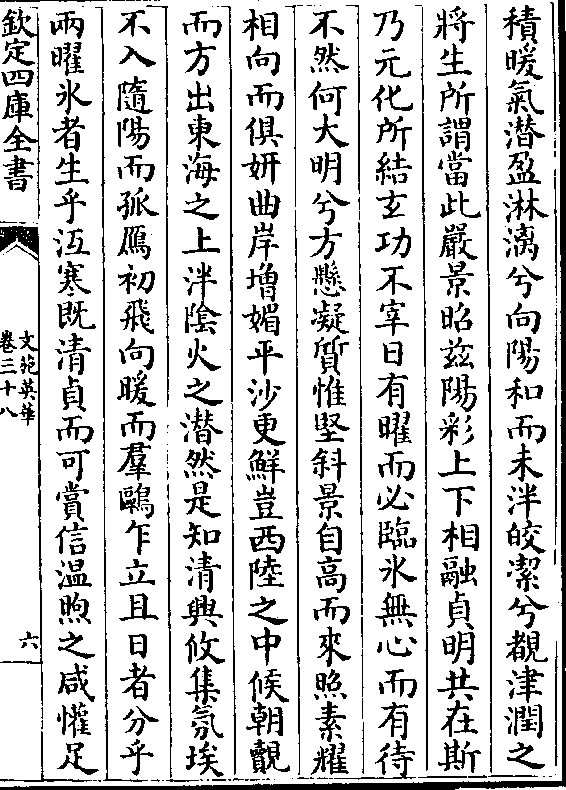 積暖氣潜盈淋漓兮向陽和而未泮皎潔兮覩津潤之
將生所謂當此嚴景昭兹陽彩上下相融貞明共在斯
乃元化所結玄功不宰日有曜而必臨氷無心而有待
不然何大明兮方懸凝質惟堅斜景自高而來照素耀
相向而俱妍曲岸增媚平沙更鮮豈西陸之中候朝覿
而方出東海之上泮陰火之潜然是知清興攸集氛埃
不入隨陽而孤鴈初飛向暖而羣鷗乍立且日者分乎
兩曜氷者生乎沍寒既清貞而可賞信温煦之咸懽足
欽定四庫全書
文苑英華
卷三十八
六